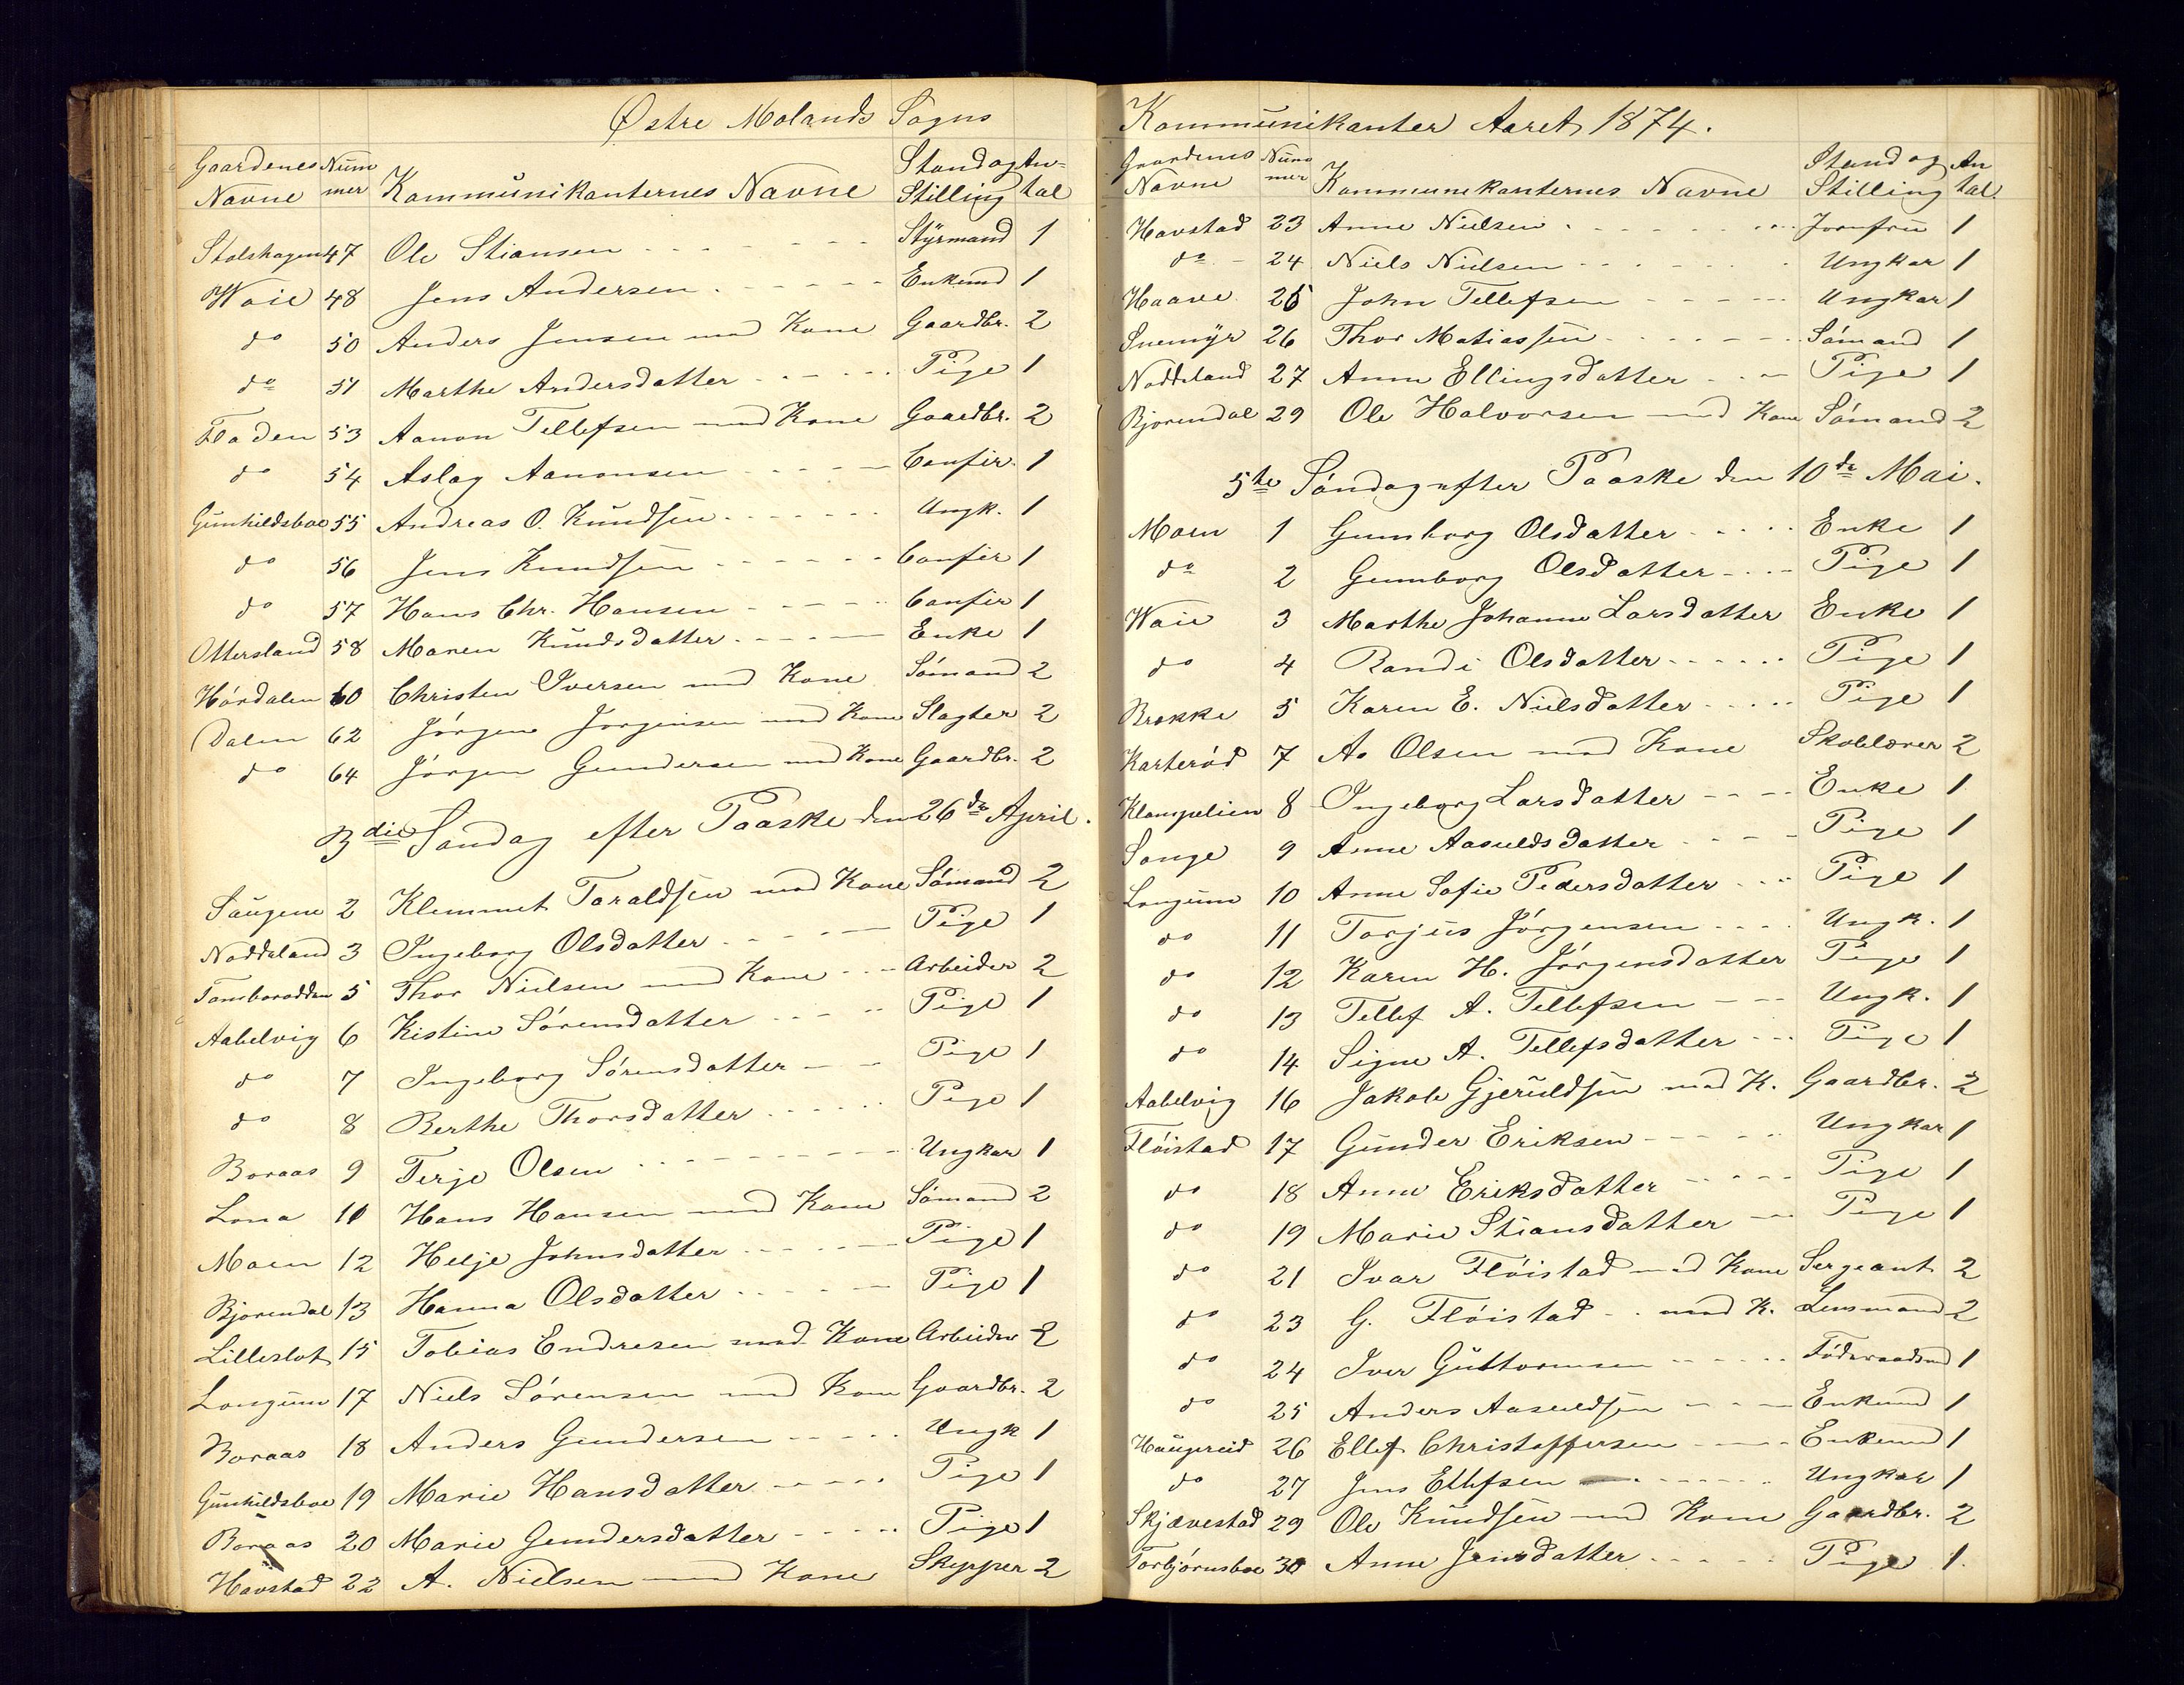 Østre Molands Sogns
Gaardenes Navne Nummer Kommunikanternes Navne Stand og Stilling Antal
Stølshagen 47 Ole Stiansen Styrmand 1
Waie 48 Jens Andersen Enkemd 1
do 50 Anders Jensen med Kone Gaardbr. 2
do 51 Marthe Andersdatter Pige 1
Fladen 53 Aanon Tellefsen med Kone Gaardbr. 2
do 54 Aslag Aanonsen Confir. 1
Gunhildsboe 55 Andreas O. Knudsen Ungk. 1
do 56 Jens Knudsen Confir 1
do 57 Hans Chr. Hansen Confir 1
Ottersland 58 Maren Knudsdatter Enke 1
Hørdalen 60 Christen Iversen med Kone Sømand 2
Dalen 62 Jørgen Jørgensen med Kone Slagter 2
do 64 Jørgen Gundersen med Kone Gaardbr. 2
3die Søndag efter Paaske den 26de April.
Saugene 2 Klemmet Taraldsen med Kone Sømand 2
Noddeland 3 Ingeborg Olsdatter Pige 1
5 Thor Nielsen med Kone Arbeider 2
Aabelvig 6 Kistine Sørensdatter Pige 1
do 7 Ingeborg Sørensdatter Pige 1
do 8 Berthe Thorsdatter Pige 1
Boraas 9 Terje Olsen Ungkar 1
Lona 11 Hans Hansen med Kone Sømand 2
Moen 12 Helje Johnsdatter Pige 1
Bjorendal 13 Hanna Olsdatter Pige 1
Lilleslot 15 Tobias Endresen med Kone Arbeider 2
Longum 17 Niels Sørensen med Kone Gaardbr. 2
Boraas 18 Anders Gundersen Ungk 1
Gunhildsboe 19 Marie Hansdatter Pige 1
Boraas 20 Marie Gundersdatter Pige 1
Havstad 22 A. Nielsen med Kone Skypper 2
Kommunikanter Aaret 1874.
Gaardenes Navne Nummer Kommunikanternes Navne Stand og Stilling Antal.
Havstad 23 Anne Nielsen Jomfru 1
do 24 Niels Nielsen Ungkar 1
Haave 25 John Tellefsen Ungkar 1
Snemyr 26 Thor Matiassen Sømand 1
Noddeland 27 Anne Ellingsdatter Pige 1
Bjorendal 29 Ole Halvorsen med Kone Sømand 2
5te Søndag efter Paaske den 10de Mai.
Moen 1 Gunborg Olsdatter Enke 1
do 2 Gunborg Olsdatter Pige 1
Waie 3 Marthe Johanne Larsdatter Enke 1
do 4 Randi Olsdatter Pige 1
Brekke 5 Karen E. Nielsdatter Pige 1
Karterød 7 As Olsen med Kone Skolelærer 2
8 Ingeborg Larsdatter Enke 1
Songe 9 Anne Aasuldsdatter Pige 1
Longum 10 Anne Sofie Pedersdatter Pige 1
do 11 Torjus Jørgensen Ungk. 1
do 12 Karen H. Jørgensdatter Pige 1
do 13 Tellef A. Tellefsen Ungk. 1
do 14 Signe A. Tellefsdatter Pige 1
Aabelvig 16 Jakob Gjeruldsen med K. Gaardbr. 2
Fløistad 17 Gunder Eriksen Ungkar 1
do 18 Anne Eriksdatter Pige 1
do 19 Marie Stiansdatter Pige 1
do 21 Ivar Fløistad med Kone Sergeant 2
do 23 G. Fløistad med K. Lensmand 2
do 24 Iver Guttormsen Føderaadsmd 1
do 25 Anders Aasuldsen Enkemd 1
Haugereid 26 Ellef Christoffersen Enkemd 1
do 27 Jens Ellefsen Ungkar 1
Skjævestad 29 Ole Knudsen med Kone Gaardbr. 2
Torbjørnsboe 30 Anne Jensdatter Pige 1.